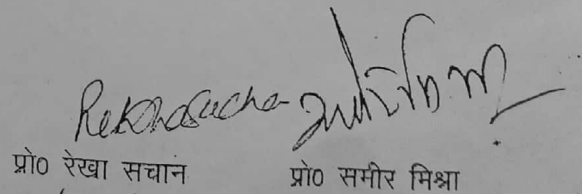 Rekha Sachan
प्रो० रेखा सचान प्रो० समीर मिश्रा